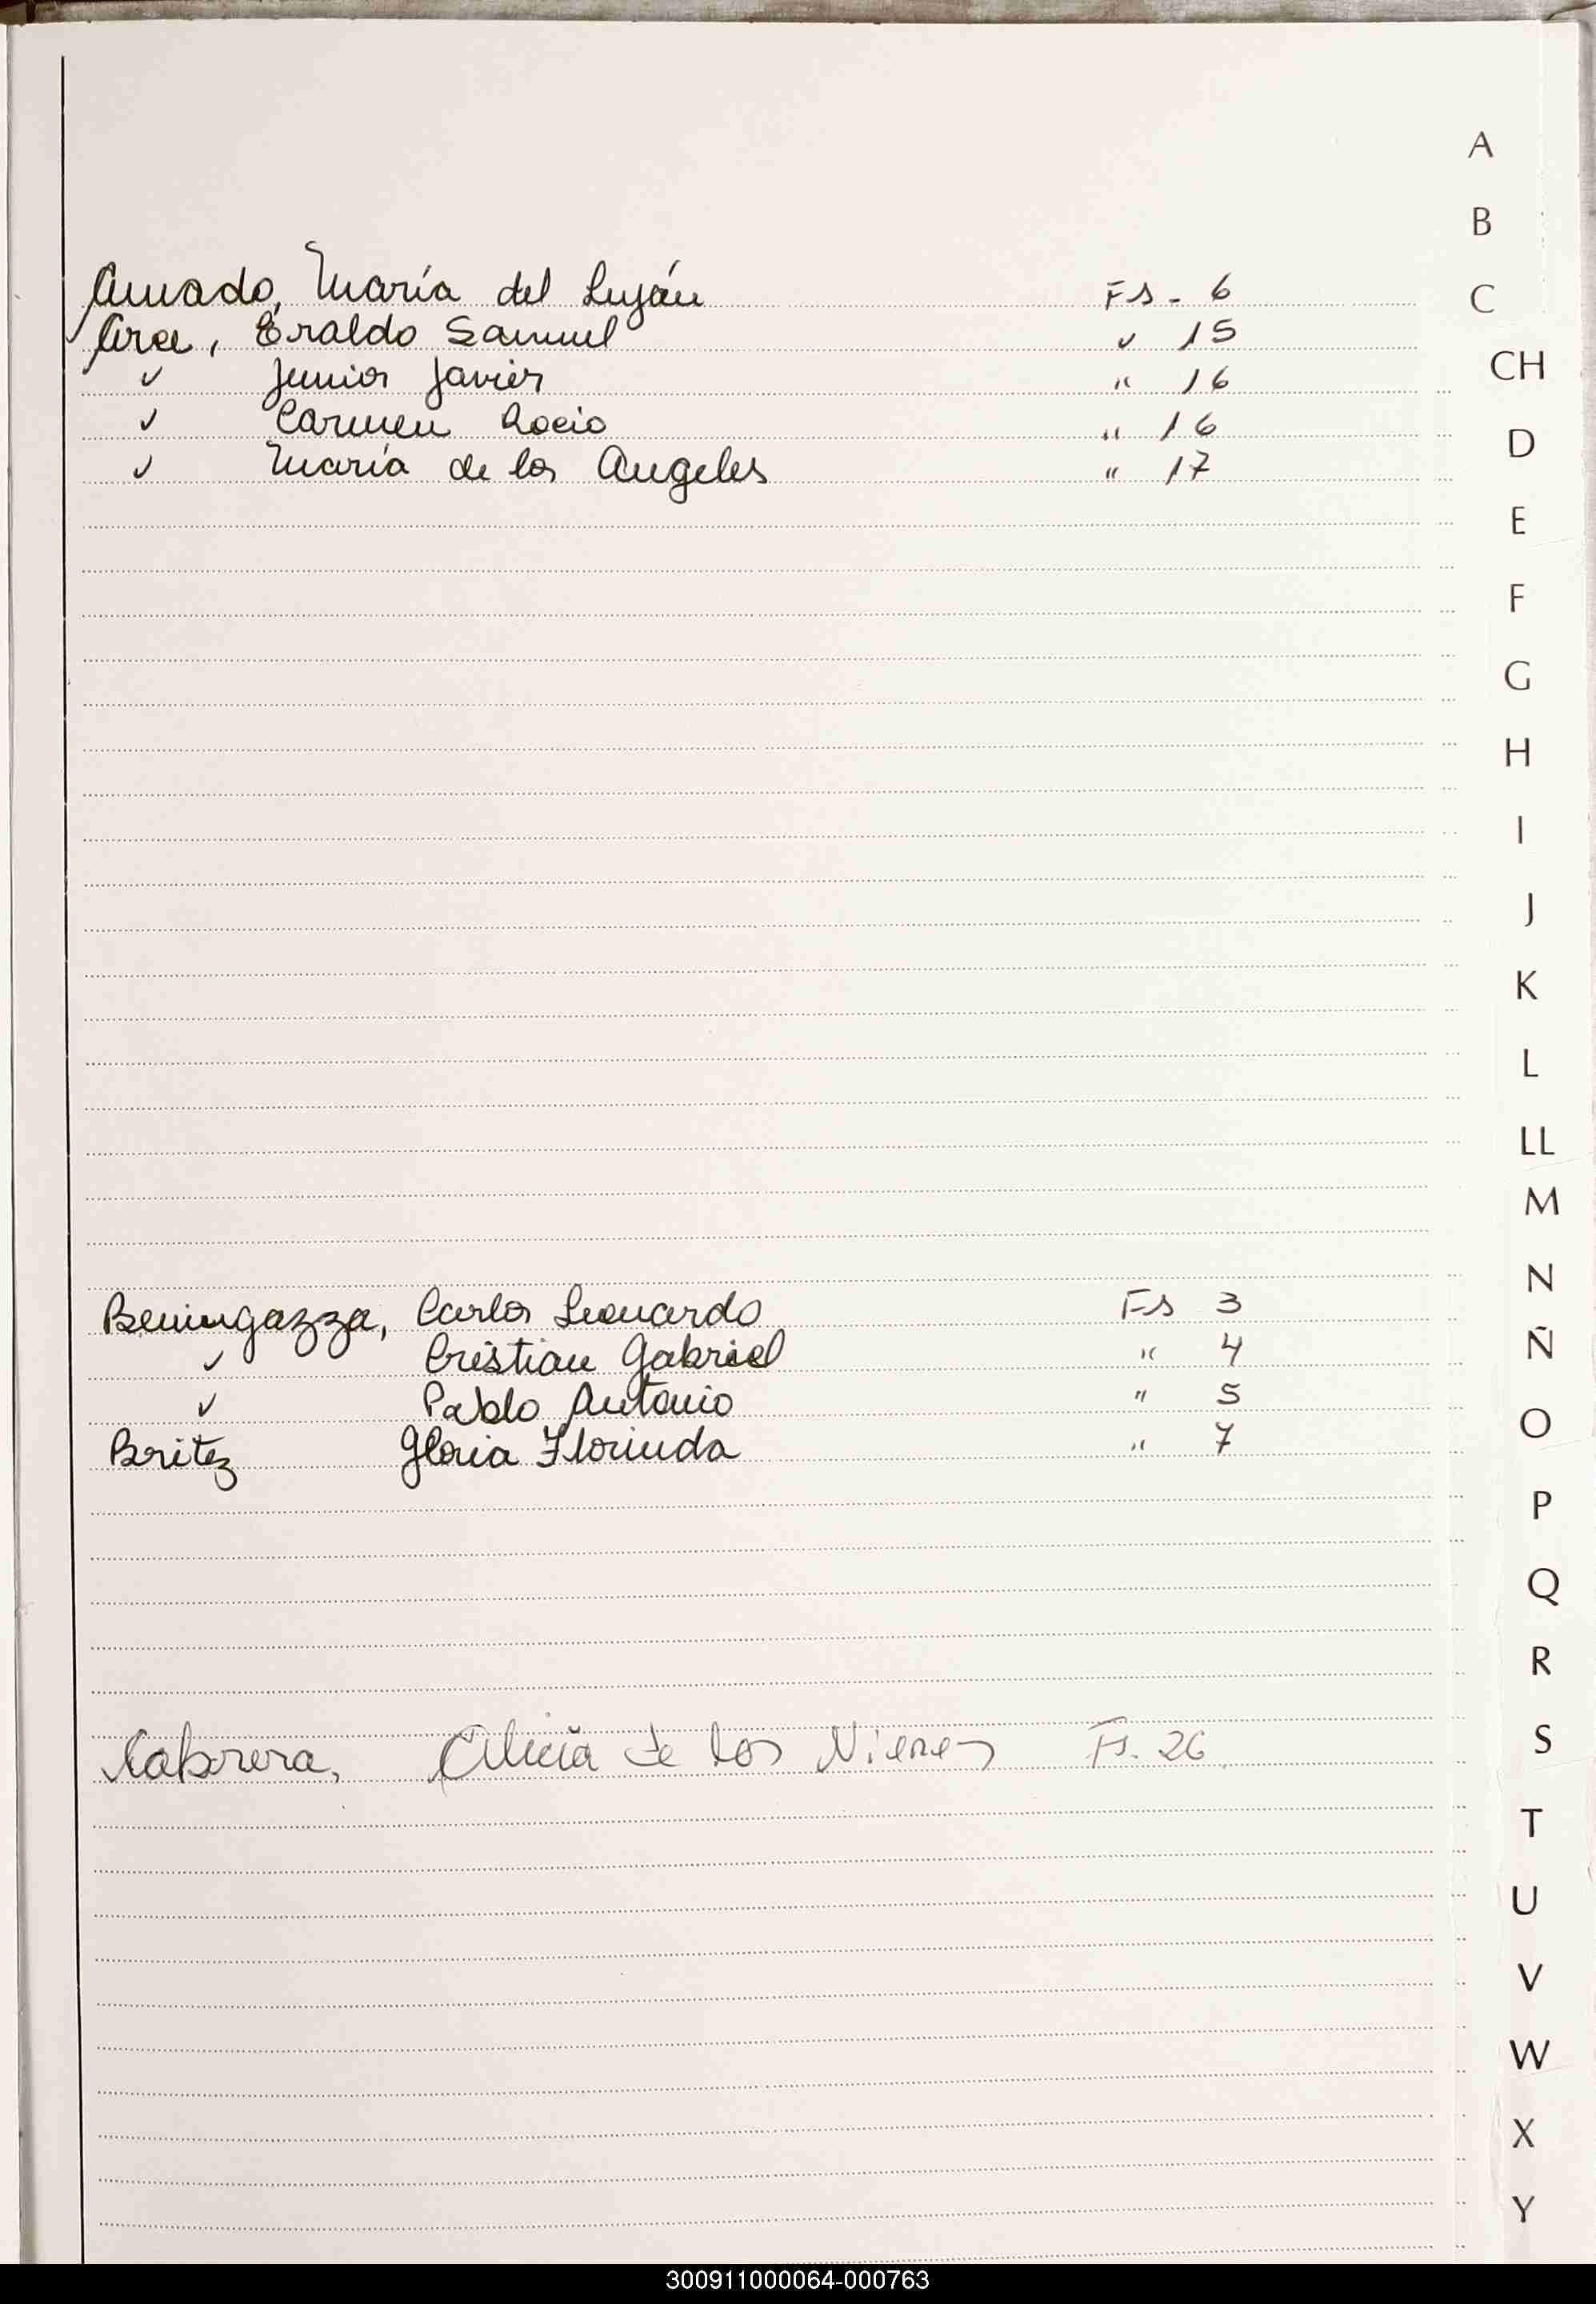 A
B
Amado, María del Luján Fs - 6
C
Arce, Eraldo Samuel " 15
CH
" Junior Javier " 16
" Carmen Rocio " 16
D
" María de los Angeles " 17
E
F
G
H
I
J
K
L
LL
M
N
Beningazza, Carlos Leonardo Fs 3
Ñ
" Cristian Gabriel " 4
" Pablo Antonio " 5
O
Britez Gloria Florinda " 7
P
Q
R
S
Cabrera, Alicia de los Nieves Fs. 26
T
U
V
W
X
Y
300911000064-000763